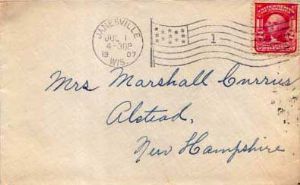 JANESVILLE
JUL 1
4-30P
1907
WIS.
1
Mrs Marshall Currier
Alstead,
New Hampshire